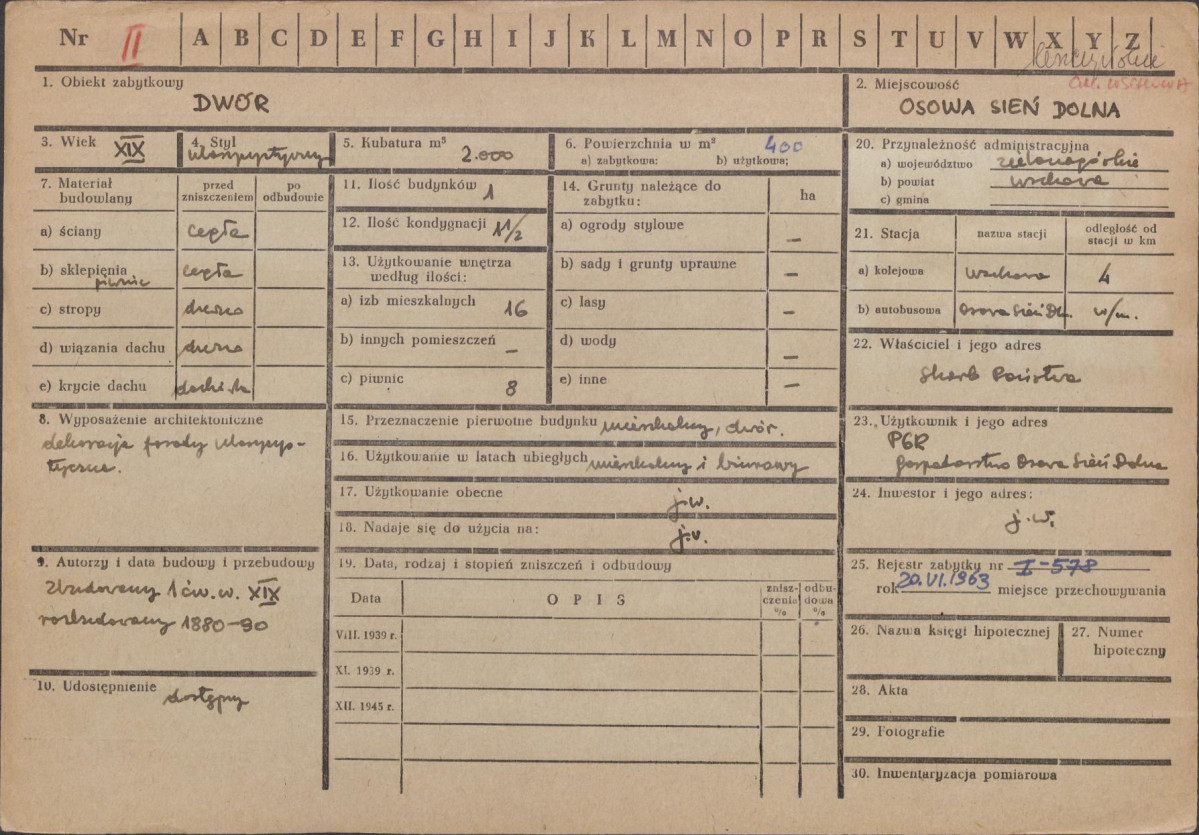 Nr II A B C D E F G H I J K L M N O P R S T U V W X Y Z
1. Obiekt zabytkowy
DWÓR
2. Miejscowość
OSOWA SIEŃ DOLNA
3. Wiek XIX
4. Styl klasycystyczny
5. Kubatura m³ 2.000
6. Powierzchnia w m² 400
a) zabytkowa: b) użytkowa;
20. Przynależność administracyjna
a) województwo zielonogórskie
b) powiat wschowa
c) gmina
7. Materiał budowlany
przed zniszczeniem
po odbudowie
a) ściany cegła
b) sklepienia piwnic cegła
c) stropy drewno
d) wiązania dachu drewno
e) krycie dachu dachówka
11. Ilość budynków 1
12. Ilość kondygnacji 1 1/2
13. Użytkowanie wnętrza według ilości:
a) izb mieszkalnych 16
b) innych pomieszczeń –
c) piwnic 8
14. Grunty należące do zabytku:
ha
a) ogrody stylowe –
b) sady i grunty uprawne –
c) lasy –
d) wody –
e) inne –
21. Stacja
nazwa stacji
odległość od stacji w km
a) kolejowa Wschowa 4
b) autobusowa Osowa Sień Dl. w/m.
22. Właściciel i jego adres
Skarb Państwa
8. Wyposażenie architektoniczne
dekoracja fasady klasycys-
tyczna.
15. Przeznaczenie pierwotne budynku mieszkalny, dwór.
16. Użytkowanie w latach ubiegłych mieszkalny i biurowy
17. Użytkowanie obecne j.w.
18. Nadaje się do użycia na: j.w.
23. Użytkownik i jego adres
PGR
Gospodarstwo Osowa Sień Dolna
24. Inwestor i jego adres:
j.w.
9. Autorzy i data budowy i przebudowy
Zbudowany 1 ćw. w. XIX
rozbudowany 1880-90
10. Udostępnienie dostępny
19. Data, rodzaj i stopień zniszczeń i odbudowy
Data
OPIS
znisz-
czenia
%
odbu-
dowa
%
VIII. 1939 r.
XI. 1939 r.
XII. 1945 r.
25. Rejestr zabytku nr I-578
rok 20.VI.1963 miejsce przechowywania
26. Nazwa księgi hipotecznej
27. Numer hipoteczny
28. Akta
29. Fotografie
30. Inwentaryzacja pomiarowa